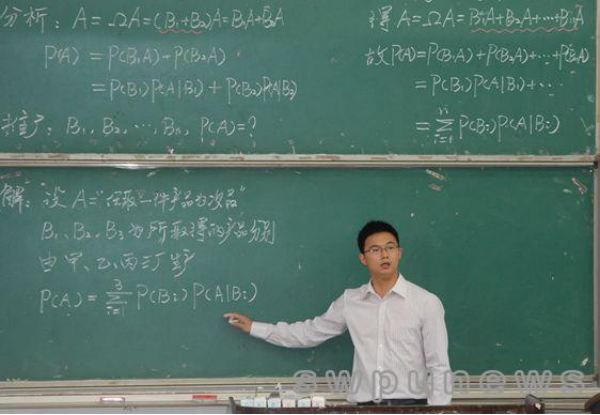 分析: A=ΩA=(B₁+B₂)A=B₁A+B₂A
P(A) = P(B₁A)+P(B₂A)
= P(B₁)P(A|B₁) + P(B₂)P(A|B₂)
推广: B₁, B₂, ⋯, Bn, P(A)=?
得 A=ΩA=B₁A+B₂A+⋯+BnA
故P(A)=P(B₁A)+P(B₂A)+⋯+P(BnA)
= P(B₁)P(A|B₁)+⋯
= ∑ⁿᵢ₌₁ P(Bᵢ)P(A|Bᵢ)
解: 设 A="任取一件产品为次品"
B₁、B₂、B₃为所取得的产品分别
由甲、乙、丙三厂生产
P(A) = ∑³ᵢ₌₁ P(Bᵢ)P(A|Bᵢ)
swpunews